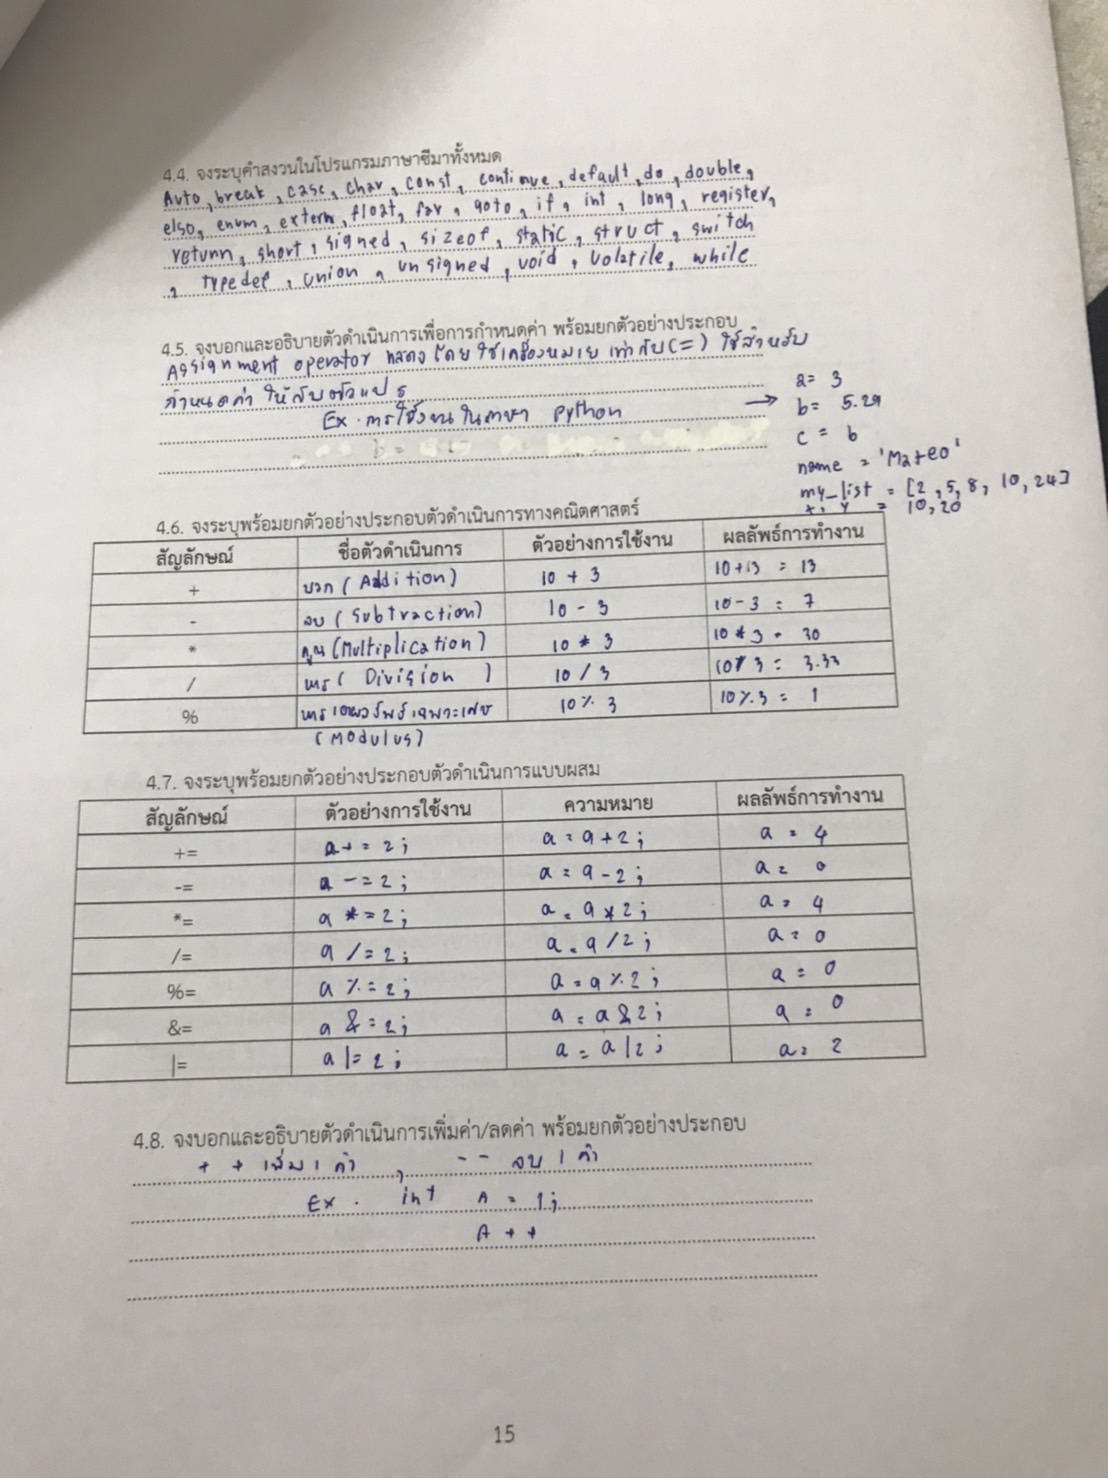 4.4. จงระบุคำสงวนในโปรแกรมภาษาซีมาทั้งหมด
Auto, break, case, char, const, continue, default, do, double,
else, enum, extern, float, for, goto, if, int, long, register,
return, short, signed, sizeof, static, struct, switch
, typedef, union, unsigned, void, volatile, while
4.5. จงบอกและอธิบายตัวดำเนินการเพื่อการกำหนดค่า พร้อมยกตัวอย่างประกอบ
Assignment operator แสดงโดยใช้เครื่องหมายเท่ากับ(=) ใช้สำหรับ
กำหนดค่าให้กับตัวแปร
Ex. การใช้งานในภาษา Python →
a = 3
b = 5.29
c = b
name = 'Mateo'
my_list = [2, 5, 8, 10, 24]
x, y = 10, 20
4.6. จงระบุพร้อมยกตัวอย่างประกอบตัวดำเนินการทางคณิตศาสตร์
สัญลักษณ์ ชื่อตัวดำเนินการ ตัวอย่างการใช้งาน ผลลัพธ์การทำงาน
+ บวก (Addition) 10 + 3 10+13 = 13
- ลบ (Subtraction) 10 - 3 10-3 = 7
* คูณ (Multiplication) 10 * 3 10*3 = 30
/ หาร (Division) 10 / 3 10/3 = 3.33
% หารเอาผลลัพธ์เฉพาะเศษ 10 % 3 10%3 = 1
(Modulus)
4.7. จงระบุพร้อมยกตัวอย่างประกอบตัวดำเนินการแบบผสม
สัญลักษณ์ ตัวอย่างการใช้งาน ความหมาย ผลลัพธ์การทำงาน
+= a += 2; a = a+2; a = 4
-= a -= 2; a = a-2; a = 0
*= a *= 2; a = a*2; a = 4
/= a /= 2; a = a/2; a = 0
%= a %= 2; a = a%2; a = 0
&= a &= 2; a = a&2; a = 0
|= a |= 2; a = a|2; a = 2
4.8. จงบอกและอธิบายตัวดำเนินการเพิ่มค่า/ลดค่า พร้อมยกตัวอย่างประกอบ
++ เพิ่ม 1 ค่า , -- ลบ 1 ค่า
Ex. int A = 1;
A ++
15